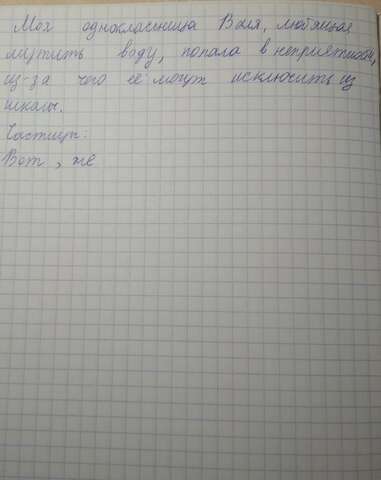 Моя одноклассница Валя, любящая
мутить воду, попала в неприятность,
из-за чего её могут исключить из
школы.
Частицы:
Вот, же